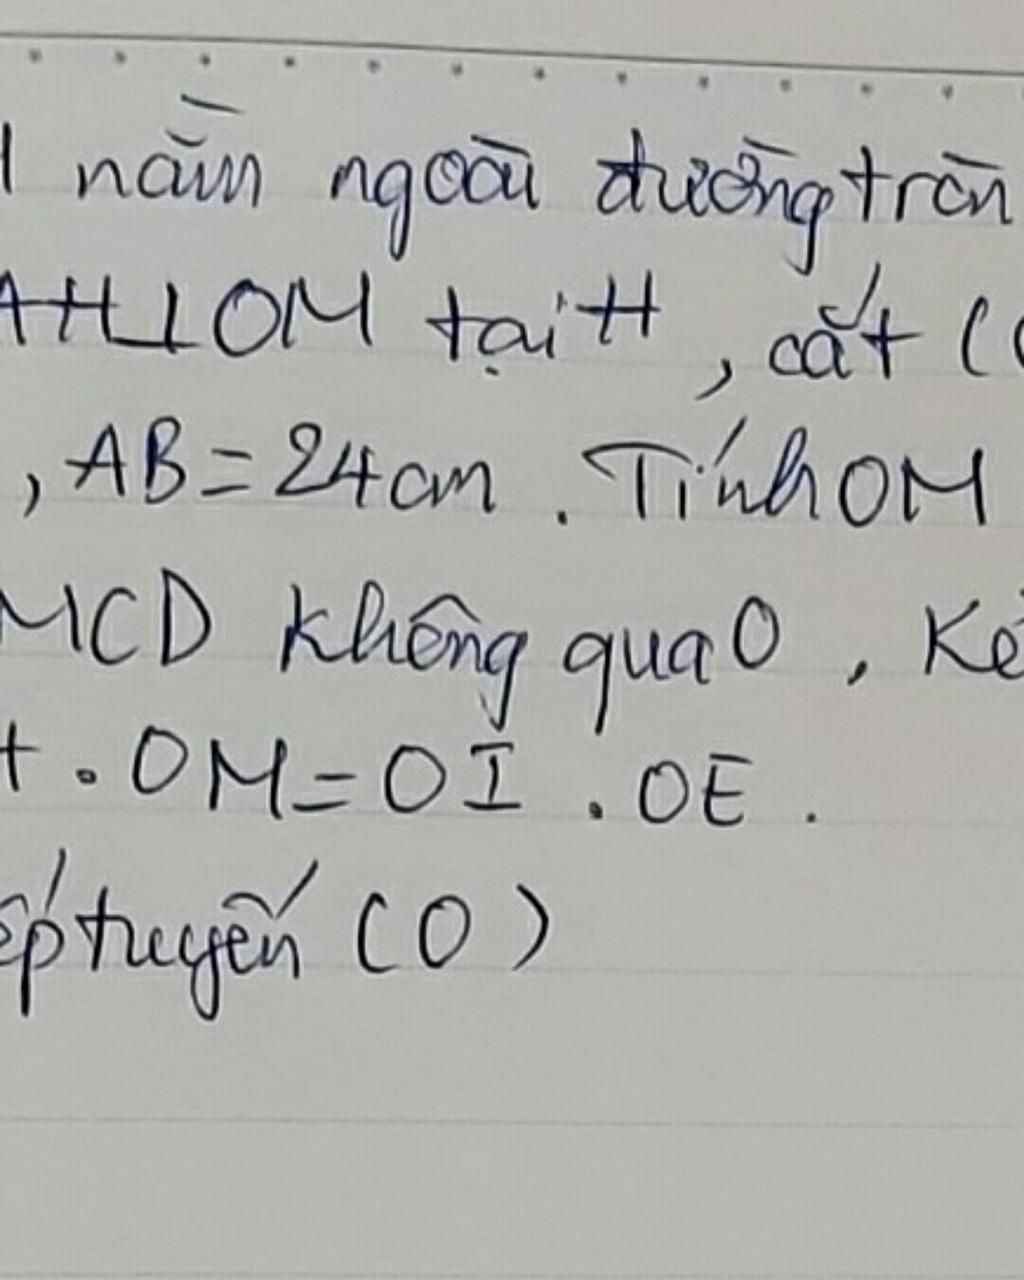 nằm ngoài đường tròn
AH⊥OM tại H, cắt (
, AB = 24cm. Tính OM
MCD không qua O, Kẻ
. OM = OI . OE .
tuyến (O)